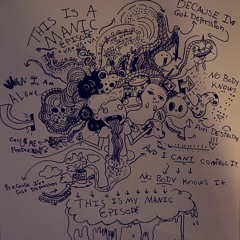 THIS IS A
MANIC
EPISODE
BECAUSE I'VE
GOT DEPRESSION
WHEN I AM
ALONE
NO BODY
KNOWS
CALL ME
AM DESTRUCTIVE
!!!
AND I CAN'T CONTROL IT.
NO BODY KNOWS IT.
BECAUSE I'VE
GOT DEPRESSION
THIS IS MY MANIC
EPISODE